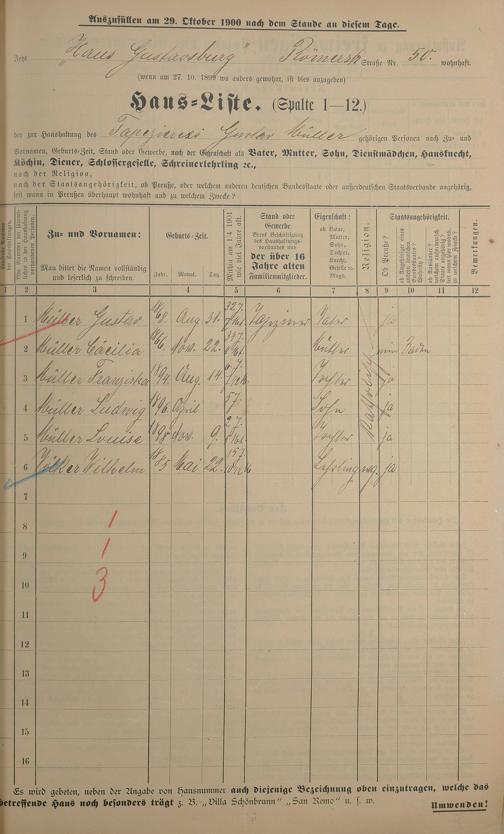 Auszufüllen am 29. Oktober 1900 nach dem Stande an diesem Tage.
Jetzt „Haus Gustavsburg" Römerstr Straße Nr. 50. wohnhaft.
(wenn am 27. 10. 1899 wo anders gewohnt, ist dies anzugeben)
Haus-Liste. (Spalte 1—12.)
der zur Haushaltung des Tapezierers Gustav Müller gehörigen Personen nach Zu- und
Vornamen, Geburts-Zeit, Stand oder Gewerbe, nach der Eigenschaft als Vater, Mutter, Sohn, Dienstmädchen, Hausknecht,
Köchin, Diener, Schlossergeselle, Schreinerlehrling ꝛc.,
nach der Religion,
nach der Staatsangehörigkeit, ob Preuße, oder welchem anderen deutschen Bundesstaate oder außerdeutschen Staatsverbande angehörig,
seit wann in Preußen überhaupt wohnhaft und zu welchem Zwecke?
Zu- und Vornamen:
Man bittet die Namen vollständig
und leserlich zu schreiben.
Geburts-Zeit.
Jahr. Monat. Tag.
Mithin am 1/4 1901
wie viel Jahre alt.
Stand oder
Gewerbe
der über 16
Jahre alten
Familienmitglieder.
Eigenschaft:
ob Vater,
Mutter,
Sohn,
Tochter,
Religion.
Staatsangehörigkeit.
Ob Preuße?
Bemerkungen.
1 2 3 4 5 6 7 8 9 10 11 12
1 Müller Gustav 1868. Aug 31. Tapezierer Vater ja
2 Müller Cäcilia 1866. Nov. 22. Mutter nein Baden
3 Müller Franziska 1894. Aug. 14. Tochter ja
4 Müller Ludwig 1896. April Sohn ja
5 Müller Louise 1898. Nov. 9. Tochter ja
6 Völker Wilhelm 1885 Mai 22. Lehrling evg. ja
Katholisch
7
8 1
9 1
10 3
11
12
13
14
15
16
Es wird gebeten, neben der Angabe von Hausnummer auch diejenige Bezeichnung oben einzutragen, welche das
betreffende Haus noch besonders trägt z. B. „Villa Schönbrunn" „San Remo" u. s. w.
Umwenden!